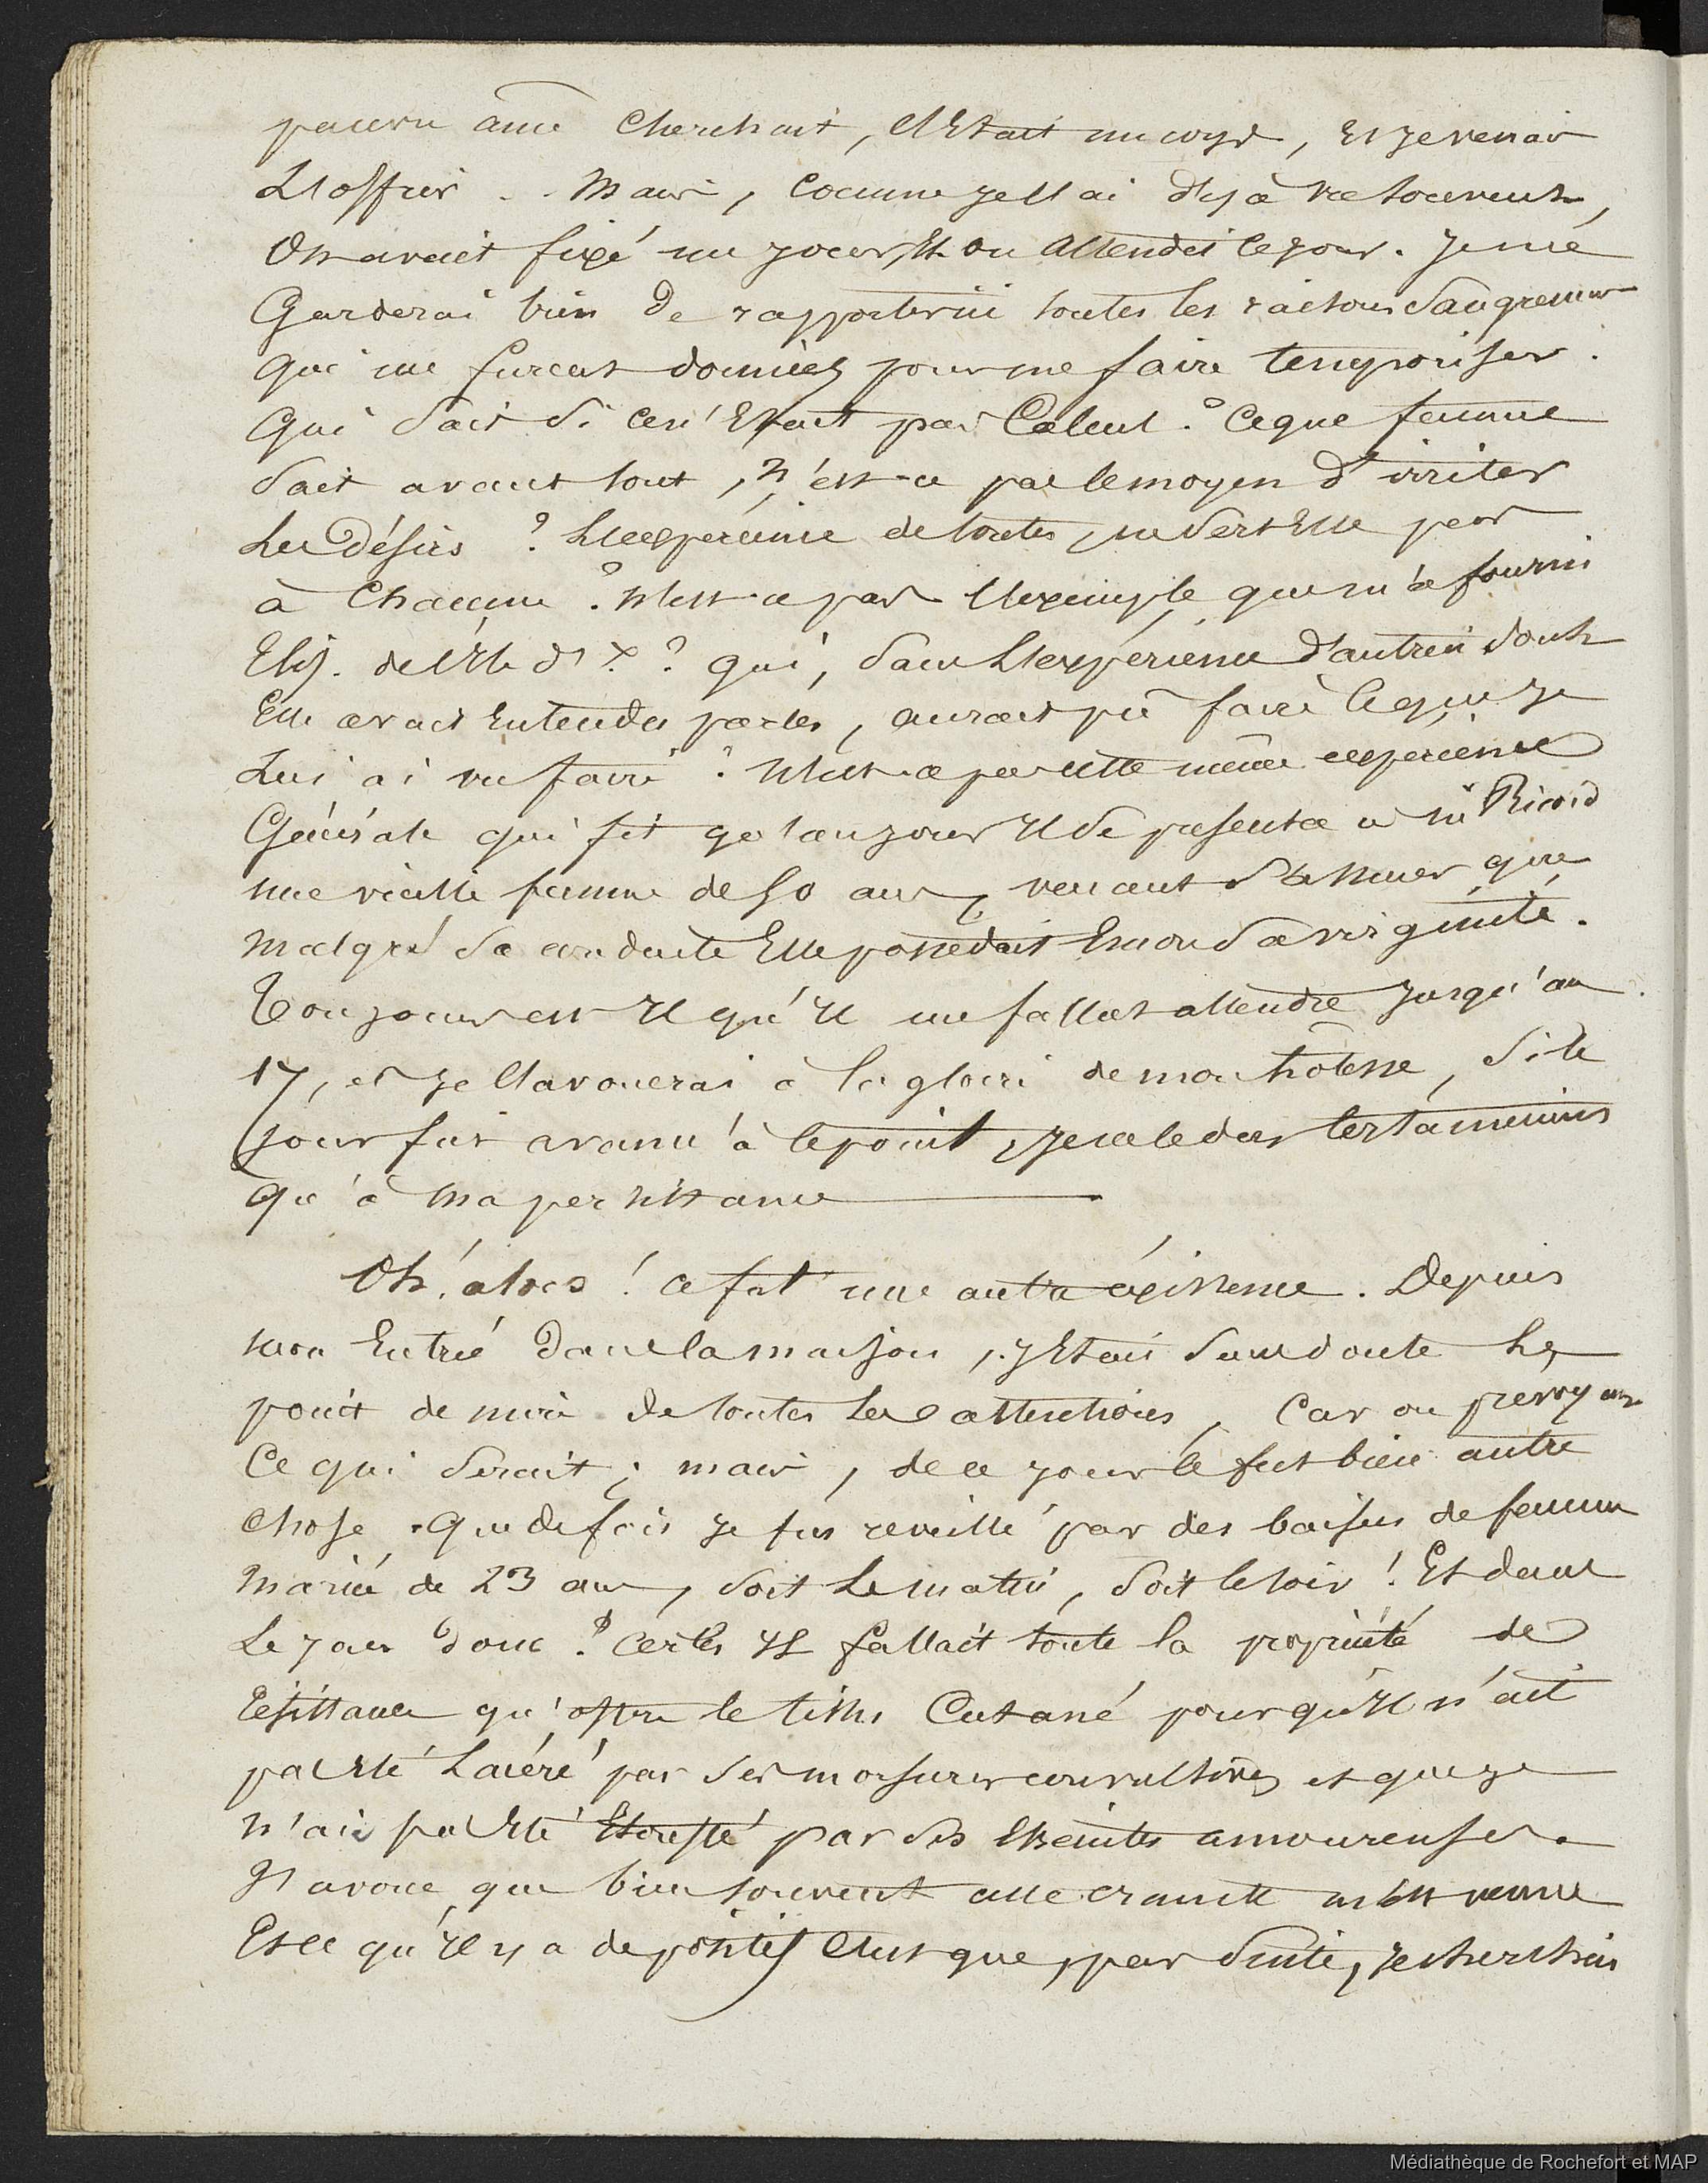 pauvre âme cherchait, c'était un corps, et je venais
l'offrir .. Mais, comme je l'ai déjà vu souvent,
On avait fixé un jour, et on attendit ce jour. Je me
Garderai bien de rapporter ici toutes les raisons saugrenues
qui me furent données pour me faire temporiser.
Qui sait si ce n'était pas calcul ? Ce que femme
sait avant tout, n'est-ce pas le moyen d'irriter
les désirs ? L'expérience de toutes, ne sert elle pas
à chacune ? N'est-ce pas l'exemple que m'a fourni
Elis. de l'île d'X ? qui, sans l'expérience d'autrui dont
Elle avait entendu parler, aurait pu faire ce que je
Lui ai vu faire ? N'est-ce pas cette même expérience
Générale qui fit qu'un jour il se présenta à Mr Ricord
une vieille femme de 50 ans, venant s'assurer que
malgré sa conduite elle possédait encor sa virginité.
Toujours est il qu'il me fallut attendre jusqu'au
17, et je l'avouerai à la gloire de mon hôtesse, si le
jour fut avancé à ce point, je ne le dus certainement
qu'à ma persistance
Oh ! alors ! ce fut une autre existence. Depuis
mon entrée dans la maison, j'étais sans doute le
point de mire de toutes les attentions, car on prévoyait
Ce qui serait ; mais, de ce jour ce fut bien autre
chose. Que de fois je fus réveillé par des baisers de femme
mariée de 23 ans, soit le matin, soit le soir ! Et dans
le jour donc ? Certes il fallait toute la propriété de
résistance qu'offre le tissu cutané pour qu'il n'ait
pas été lacéré par ses morsures convulsives et que je
n'aie pas été étouffé par ses étreintes amoureuses.
J'avoue que bien souvent cette crainte m'est venue
Et ce qu'il y a de positif c'est que, par suite, je cherchais
Médiathèque de Rochefort et MAP